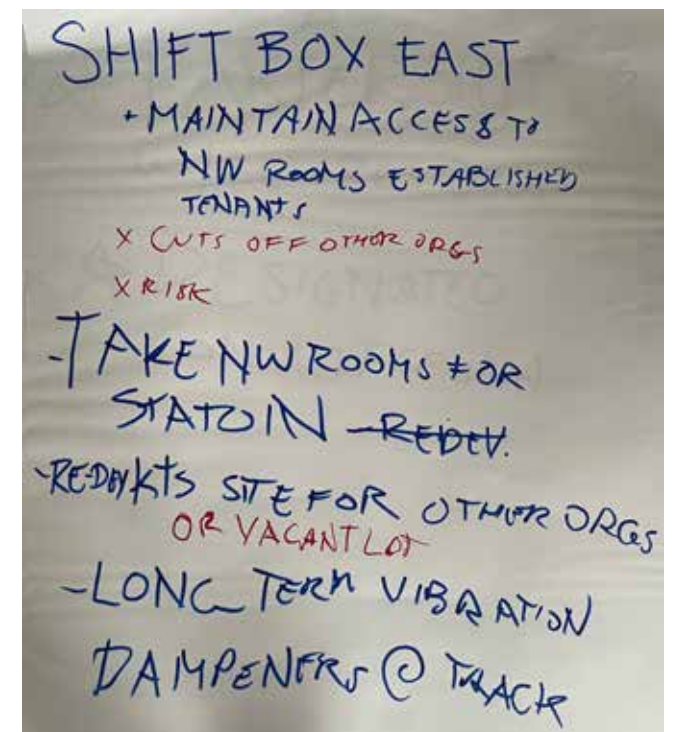 SHIFT BOX EAST
+ MAINTAIN ACCESS TO
NW ROOMS ESTABLISHED
TENANTS
X CUTS OFF OTHER ORGS
X RISK
- TAKE NW ROOMS FOR
STATOIN REDEV.
- RE-DEV KTS SITE FOR OTHER ORGS
OR VACANT LOT
- LONG TERM VIBRATION
DAMPENERS @ TRACK